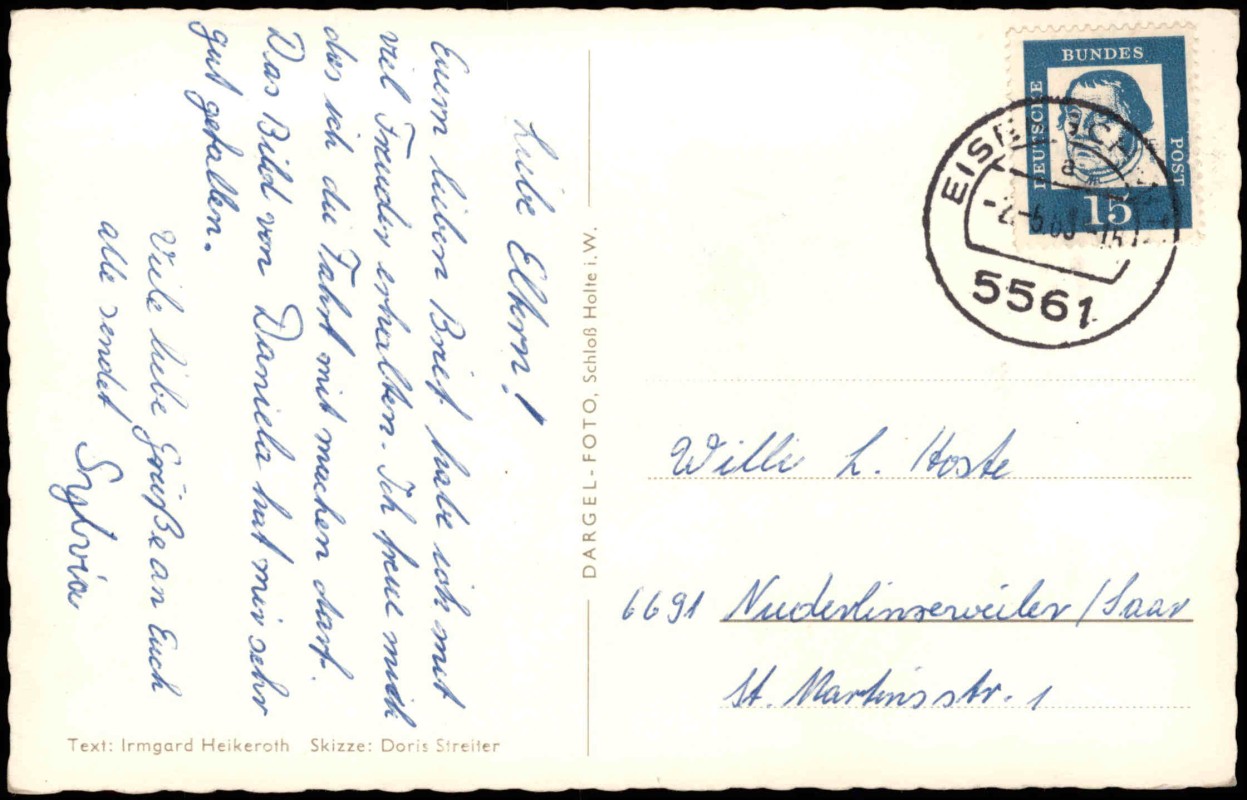 Liebe Eltern!
Euern lieben Brief habe ich mit
viel Freuder erhalten. Ich freue mich
das ich die Fahrt mit machen darf.
Das Bild von Daniela hat mir sehr
gut gefallen.
Viele liebe Grüße an Euch
alle sendet
Sylvia
Text: Irmgard Heikeroth Skizze: Doris Streiter
DARGEL-FOTO, Schloß Holte i.W.
DEUTSCHE
BUNDES
POST
15
a
5561
Willi L. Hoste
6691 Niederlinxweiler/Saar
St. Martinsstr. 1